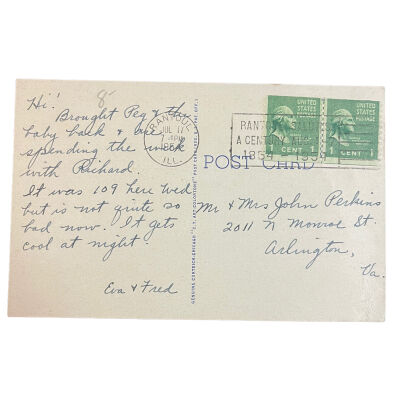 Hi! 8-
Brought Peg & the
baby back & are
spending the week
with Richard.
It was 109 here Wed
but is not quite so
bad now. It gets
cool at night.
Eva & Fred
RANTOUL
JUL 17
PM
1954
ILL.
RANTOUL
A CENTURY
1854 1954
UNITED STATES POSTAGE
1 CENT 1
UNITED STATES POSTAGE
1 CENT 1
POST CARD
Mr & Mrs John Perkins
2011 N Monroe St.
Arlington,
Va.
GENUINE CURTEICH-CHICAGO "C.T. ART-COLORTONE" POST CARD (REG. U.S. PAT. OFF.)